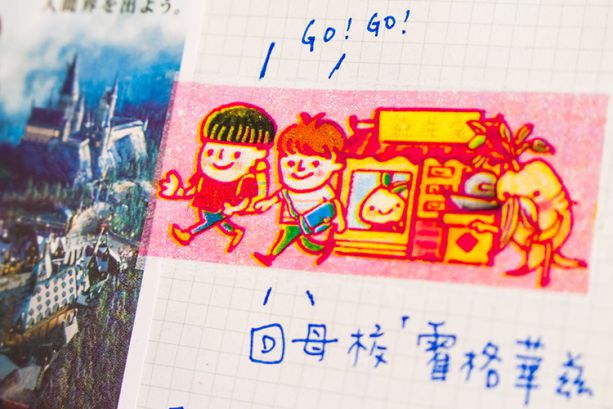 人間界を出よう。
GO! GO!
回母校「霍格華茲